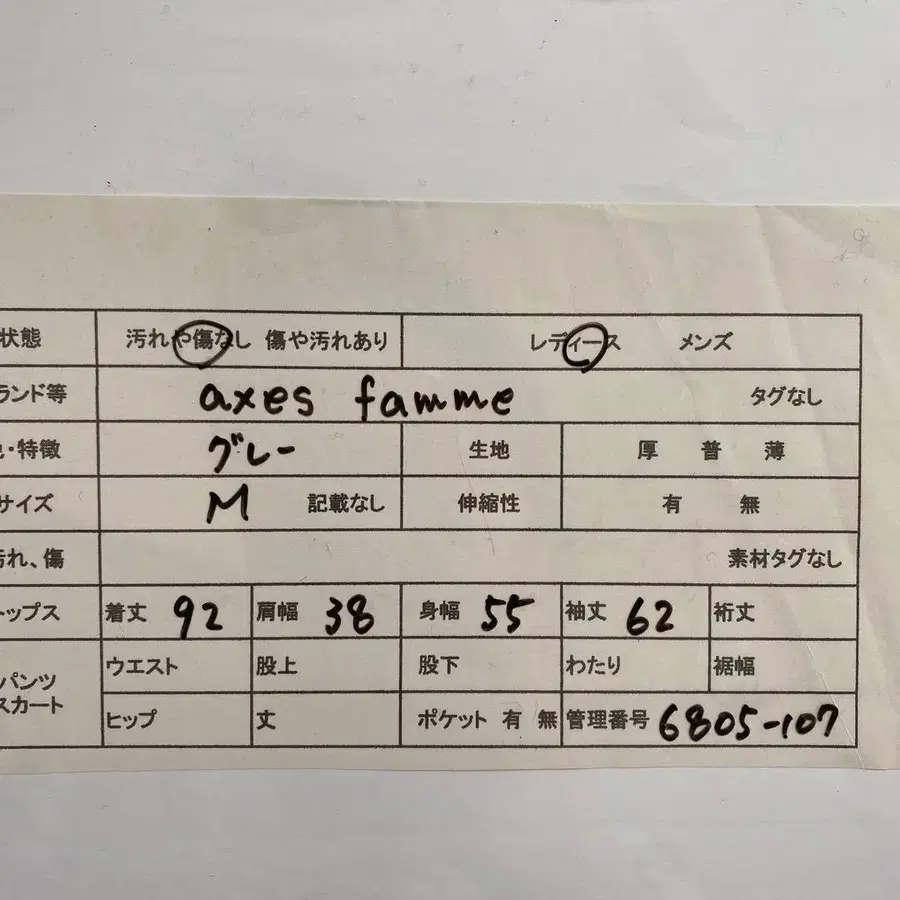 状態 汚れや傷なし 傷や汚れあり レディース メンズ
ランド等 axes famme タグなし
・特徴 グレー 生地 厚 普 薄
サイズ M 記載なし 伸縮性 有 無
汚れ、傷 素材タグなし
トップス 着丈 92 肩幅 38 身幅 55 袖丈 62 裄丈
パンツ ウエスト 股上 股下 わたり 裾幅
スカート ヒップ 丈 ポケット 有 無 管理番号 6805-107